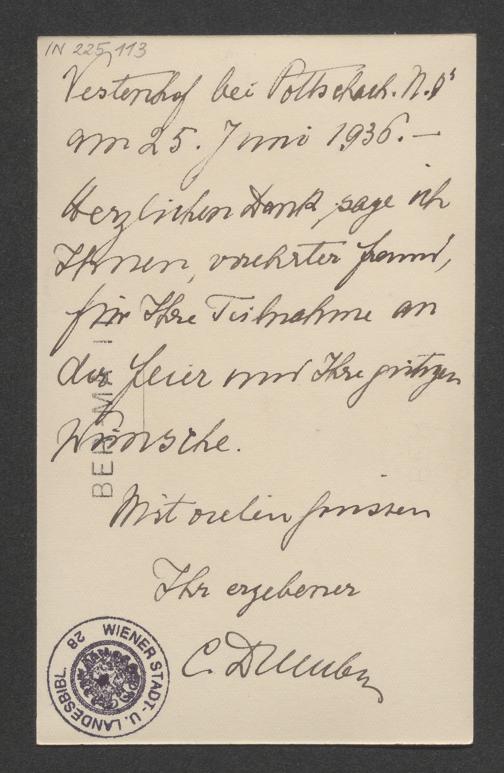 IN 225,113
Vestenhof bei Pottschach. N.Ö.
am 25. Juni 1936. —
Herzlichen Dank sage ich
Ihnen, verehrter Freund,
für Ihre Teilnahme an
der Feier und Ihre gütigen
Wünsche.
Mit vielen Grüssen
Ihr ergebener
C.
WIENER STADT- U. LANDESBIBL. 28